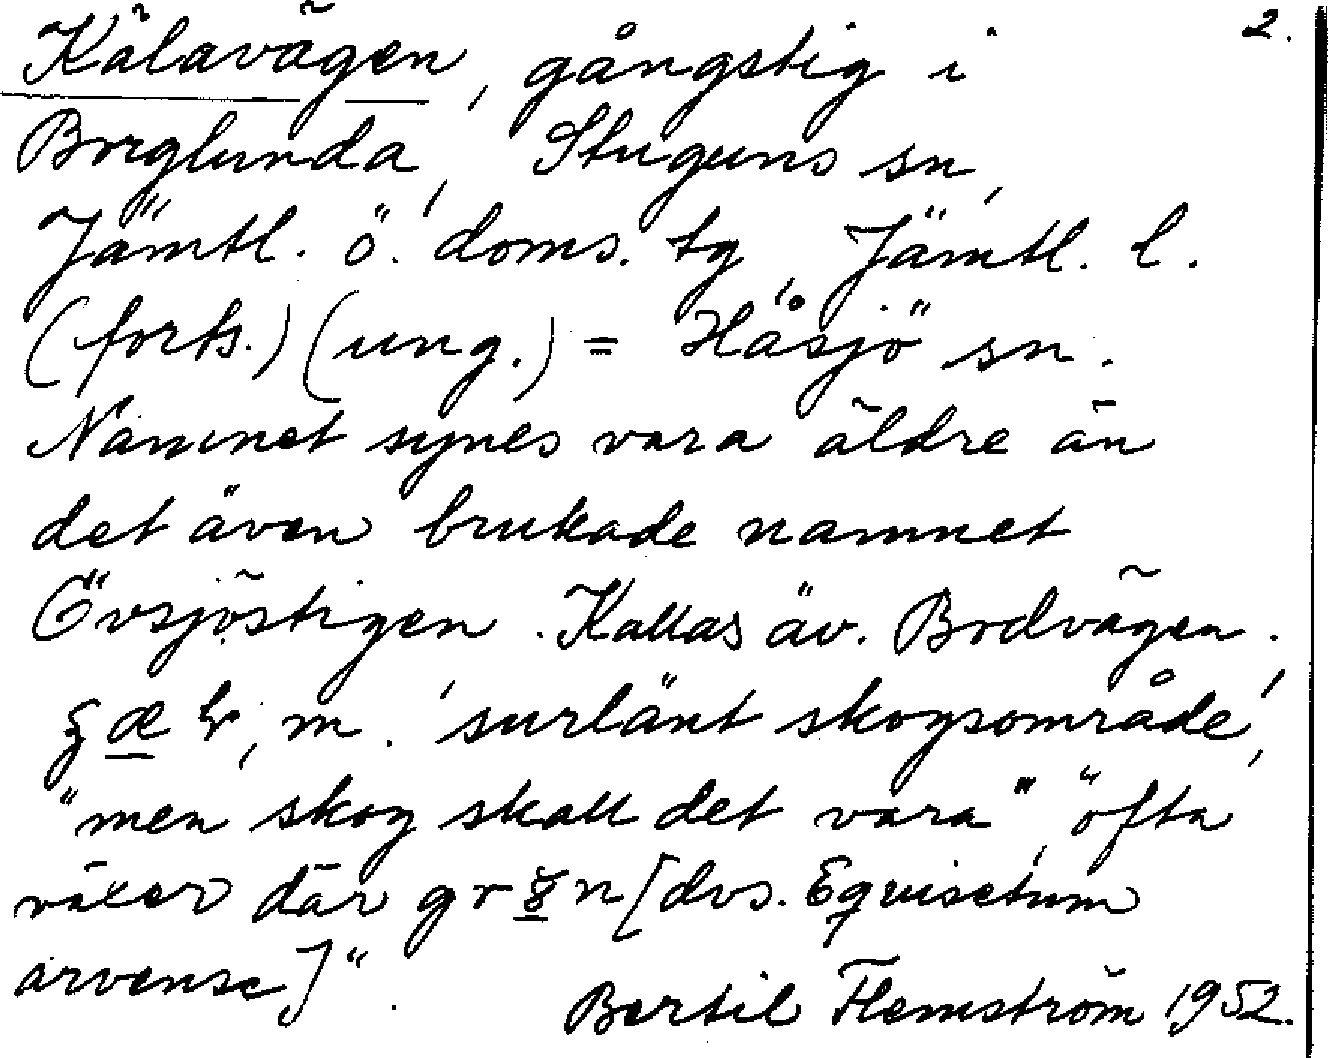 2.
Kälavägen, gångstig i
Borglunda, Stuguns sn,
Jämtl. ö. doms. tg, Jämtl. l.
(forts.) (ung.) = Håsjö sn.
Namnet synes vara äldre än
det även brukade namnet
Övsjöstigen. Kallas äv. Bodvägen.
m. 'surlänt skogsområde',
"men skog skall det vara", "ofta
växer där [dvs. Equisetum
arvense]".
Bertil Flemström 1952.